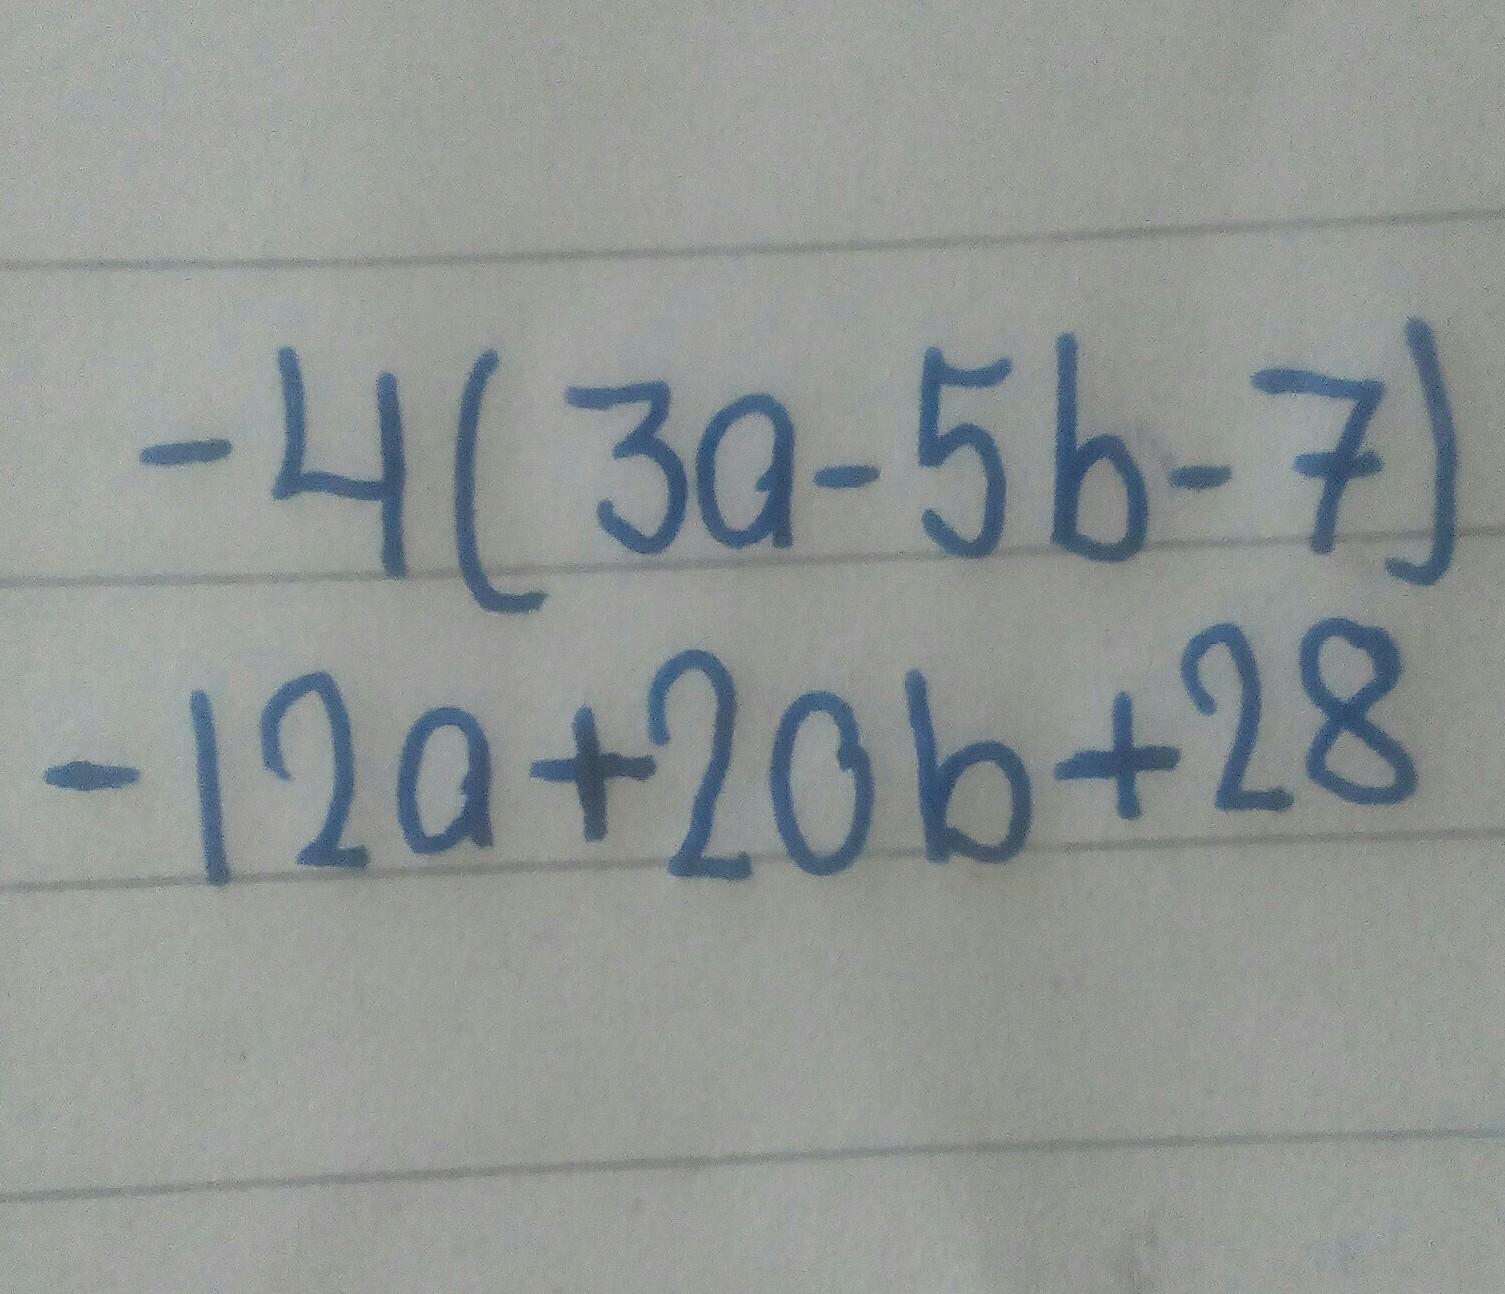 -4(3a-5b-7)
-12a+20b+28